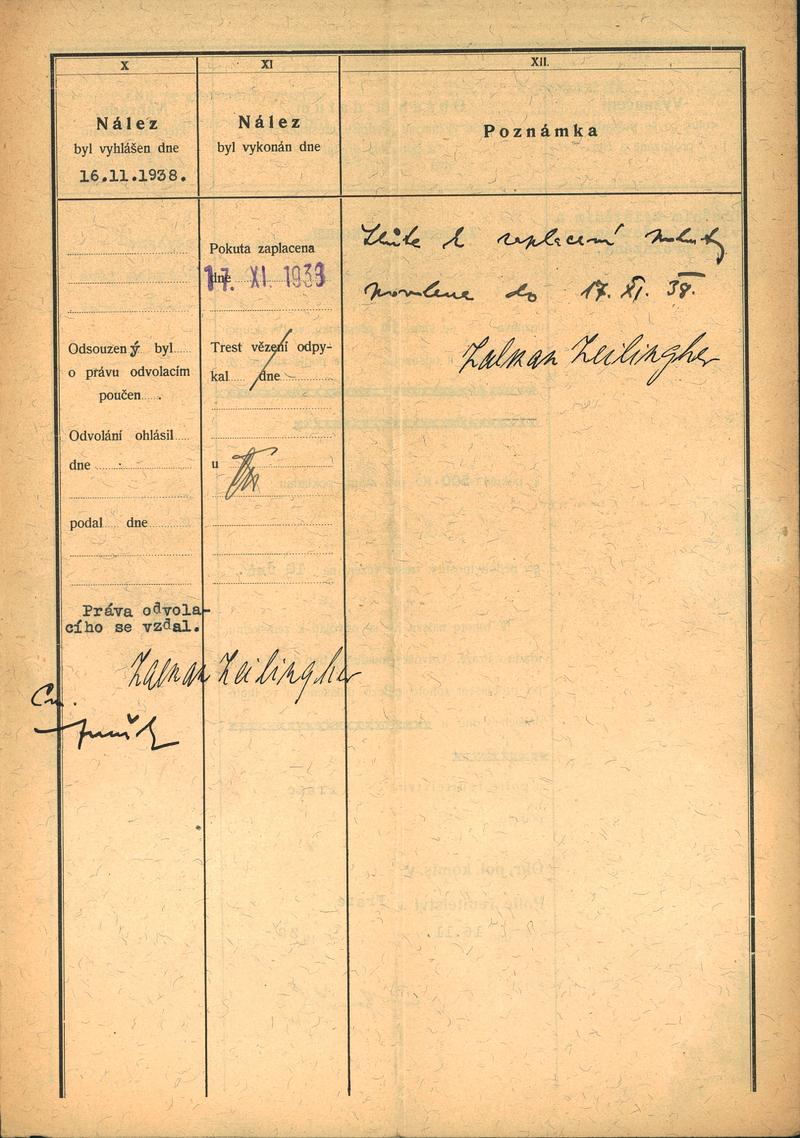 X
Nález
byl vyhlášen dne
16.11.1938.
Odsouzený byl
o právu odvolacím
poučen
Odvolání ohlásil
dne
podal dne
Práva odvola-
cího se vzdal.
Zalman Zeilingher
XI
Nález
byl vykonán dne
Pokuta zaplacena
dne
17. XI. 1938
Trest vězení odpy-
kal dne
u
XII.
Poznámka
Lhůta k zaplacení pokuty
povolena do 17. XI. 38.
Zalman Zeilingher